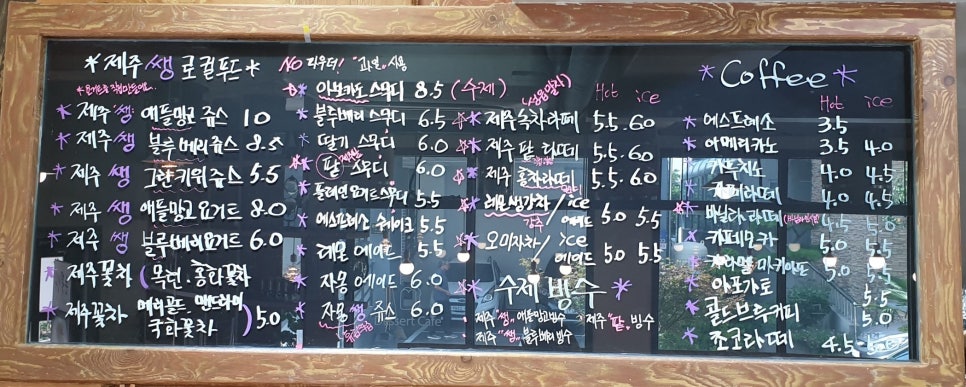 *제주 쌩 로컬푸드*
* 제주 쌩 애플망고 쥬스 10
* 제주 쌩 블루베리쥬스 8.5
* 제주 쌩 그린키위쥬스 5.5
* 제주 쌩 애플망고요거트 8.0
* 제주 쌩 블루베리요거트 6.0
* 제주꽃차 (목련.홍화꽃차
* 제주꽃차 메리골드. 맨드라미 국화꽃차 )5.0
NO 파우더! "과일"사용
아보카도 스무디 8.5 (수제)
* 블루베리 스무디 6.5
* 딸기 스무디 6.0
* 팥 스무디 6.0
* 플레인 요거트스무디 5.5
* 에스프레소 쉐이크 5.5
* 레몬 에이드 5.5
* 자몽 에이드 6.0
* 자몽 쌩 쥬스 6.0
Hot ice
제주녹차라떼 5.5 6.0
제주 팥 라떼 5.5 6.0
제주 홍차라떼 5.5 6.0
레몬생강차/ice 에이드 5.0 5.5
오미자차/ice 에이드 5.0 5.5
* 수제 빙수 *
제주 "쌩" 애플망고빙수 제주 "팥" 빙수
제주 "쌩" 블루베리빙수
* Coffee *
Hot ice
* 에스프레소 3.5
* 아메리카노 3.5 4.0
* 카푸치노 4.0 4.5
* 카페라떼 4.0 4.5
* 바닐라라떼 4.5 5.0
* 카페모카 5.0 5.5
* 카라멜 마키아또 5.0 5.5
* 아포가토 5.5
* 콜드브루커피 5.0
* 초코라떼 4.5 5.0